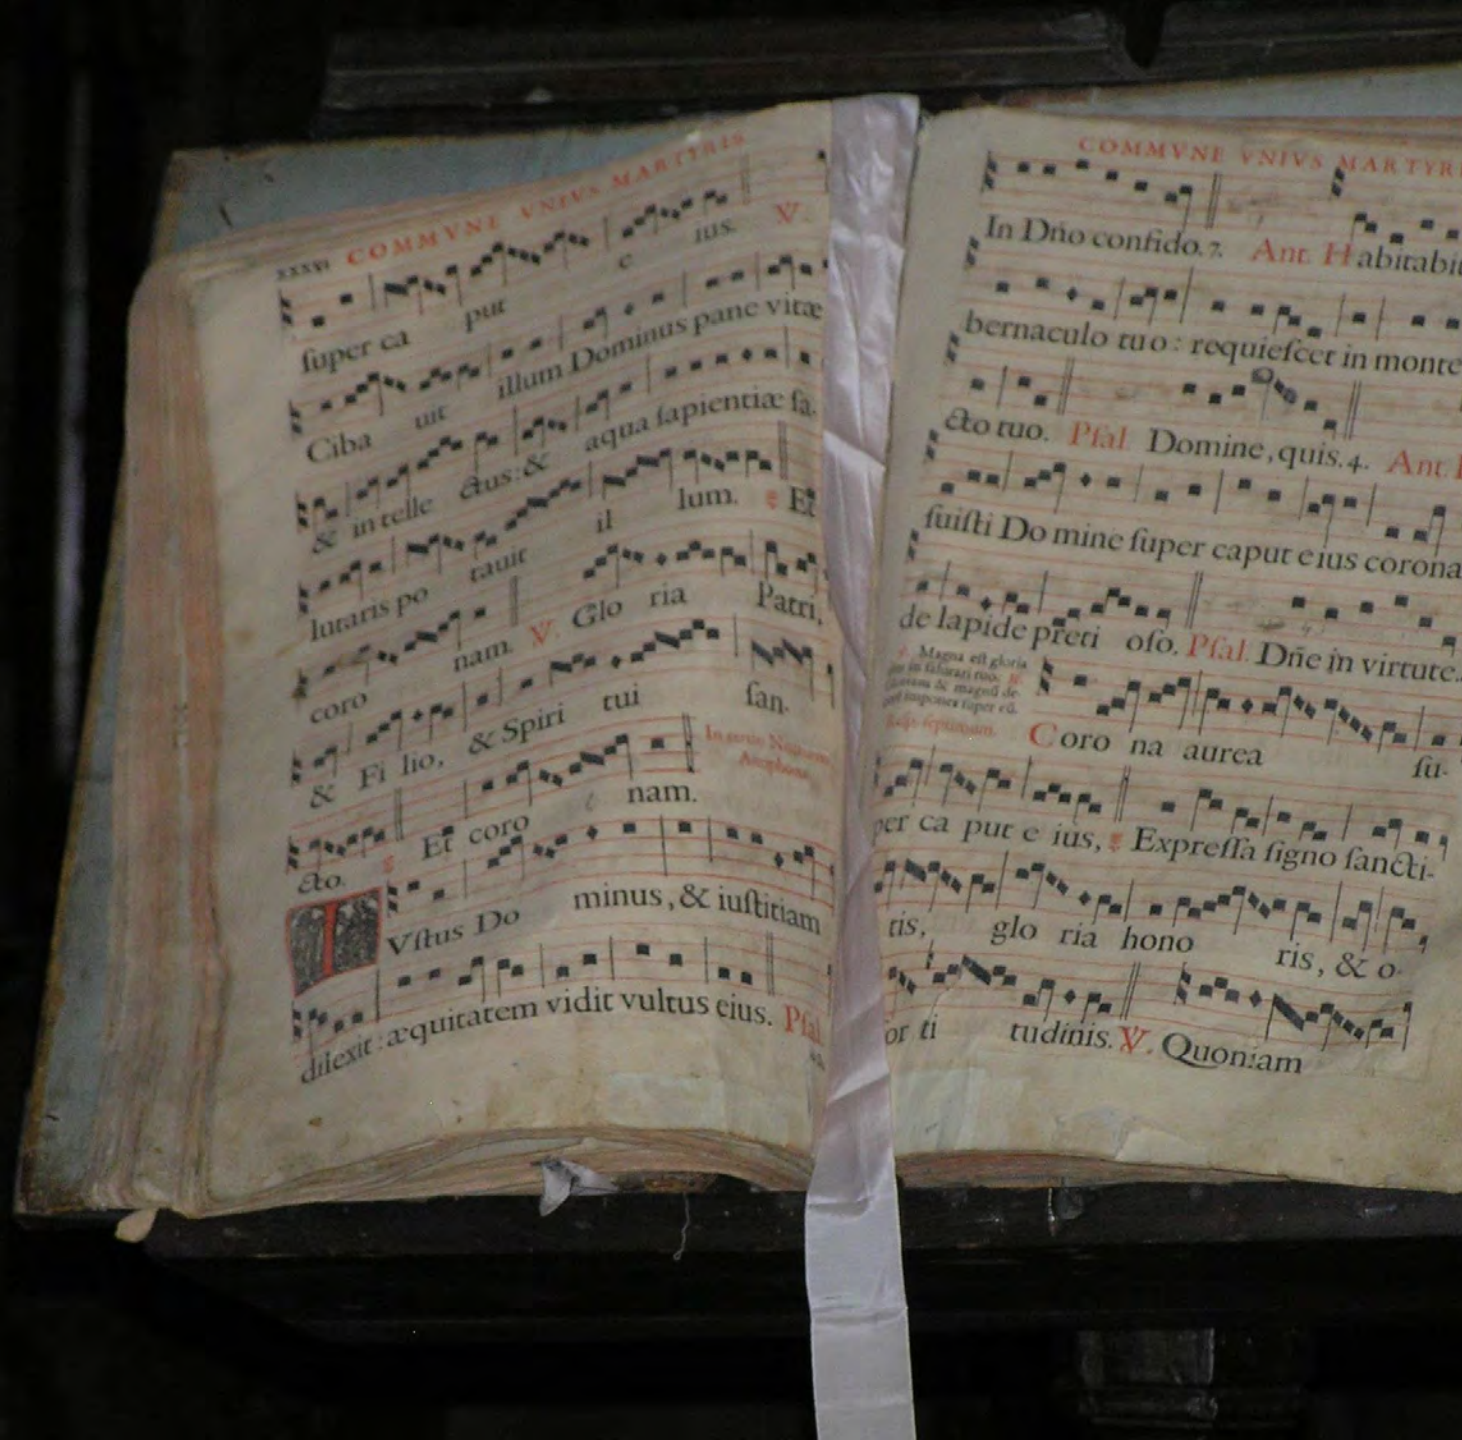 xxxvi COMMVNE VNIVS MARTYRIS
ſuper ca put e ius. V.
Ciba uit illum Dominus pane vitæ
& in telle ctus: & aqua ſapientiæ ſa-
lutaris po tauit il lum. Et
coro nam. V. Glo ria Patri,
& Fi lio, & Spiri tui ſan-
cto. Et coro nam.
IVſtus Do minus, & iuſtitiam
dilexit: æquitatem vidit vultus eius. Pſal.
COMMVNE VNIVS MARTYR
In Dño confido. 7. Ant. Habitabit
bernaculo tuo: requieſcet in monte
cto tuo. Pſal. Domine, quis. 4. Ant.
fuiſti Do mine ſuper caput eius corona
de lapide preti oſo. Pſal. Dñe in virtute.
Magna eſt gloria
Corona aurea ſu-
per ca put e ius, Expreſſa ſigno ſancti-
tis, glo ria hono ris, & o-
or ti tudinis. V. Quoniam